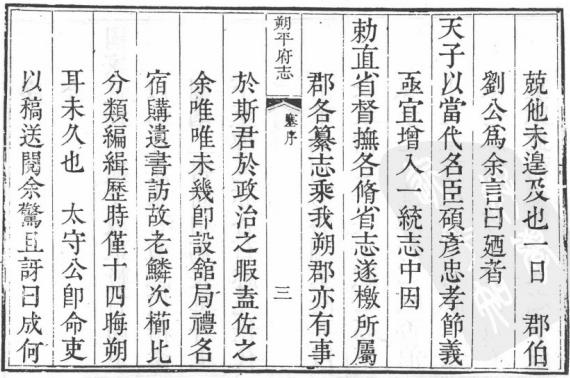 兢他未遑及也一日　郡伯
劉公爲余言曰廼者
天子以當代名臣碩彦忠孝節義
亟宜增入一統志中因
勅直省督撫各脩省志遂檄所屬
郡各纂志乘我朔郡亦有事
朔平府志
序
三
於斯君於政治之暇盍佐之
余唯唯未幾卽設舘局禮名
宿購遺書訪故老鱗次櫛比
分類編緝歷時僅十四晦朔
耳未久也　太守公卽命吏
以稿送閱余驚且訝曰成何